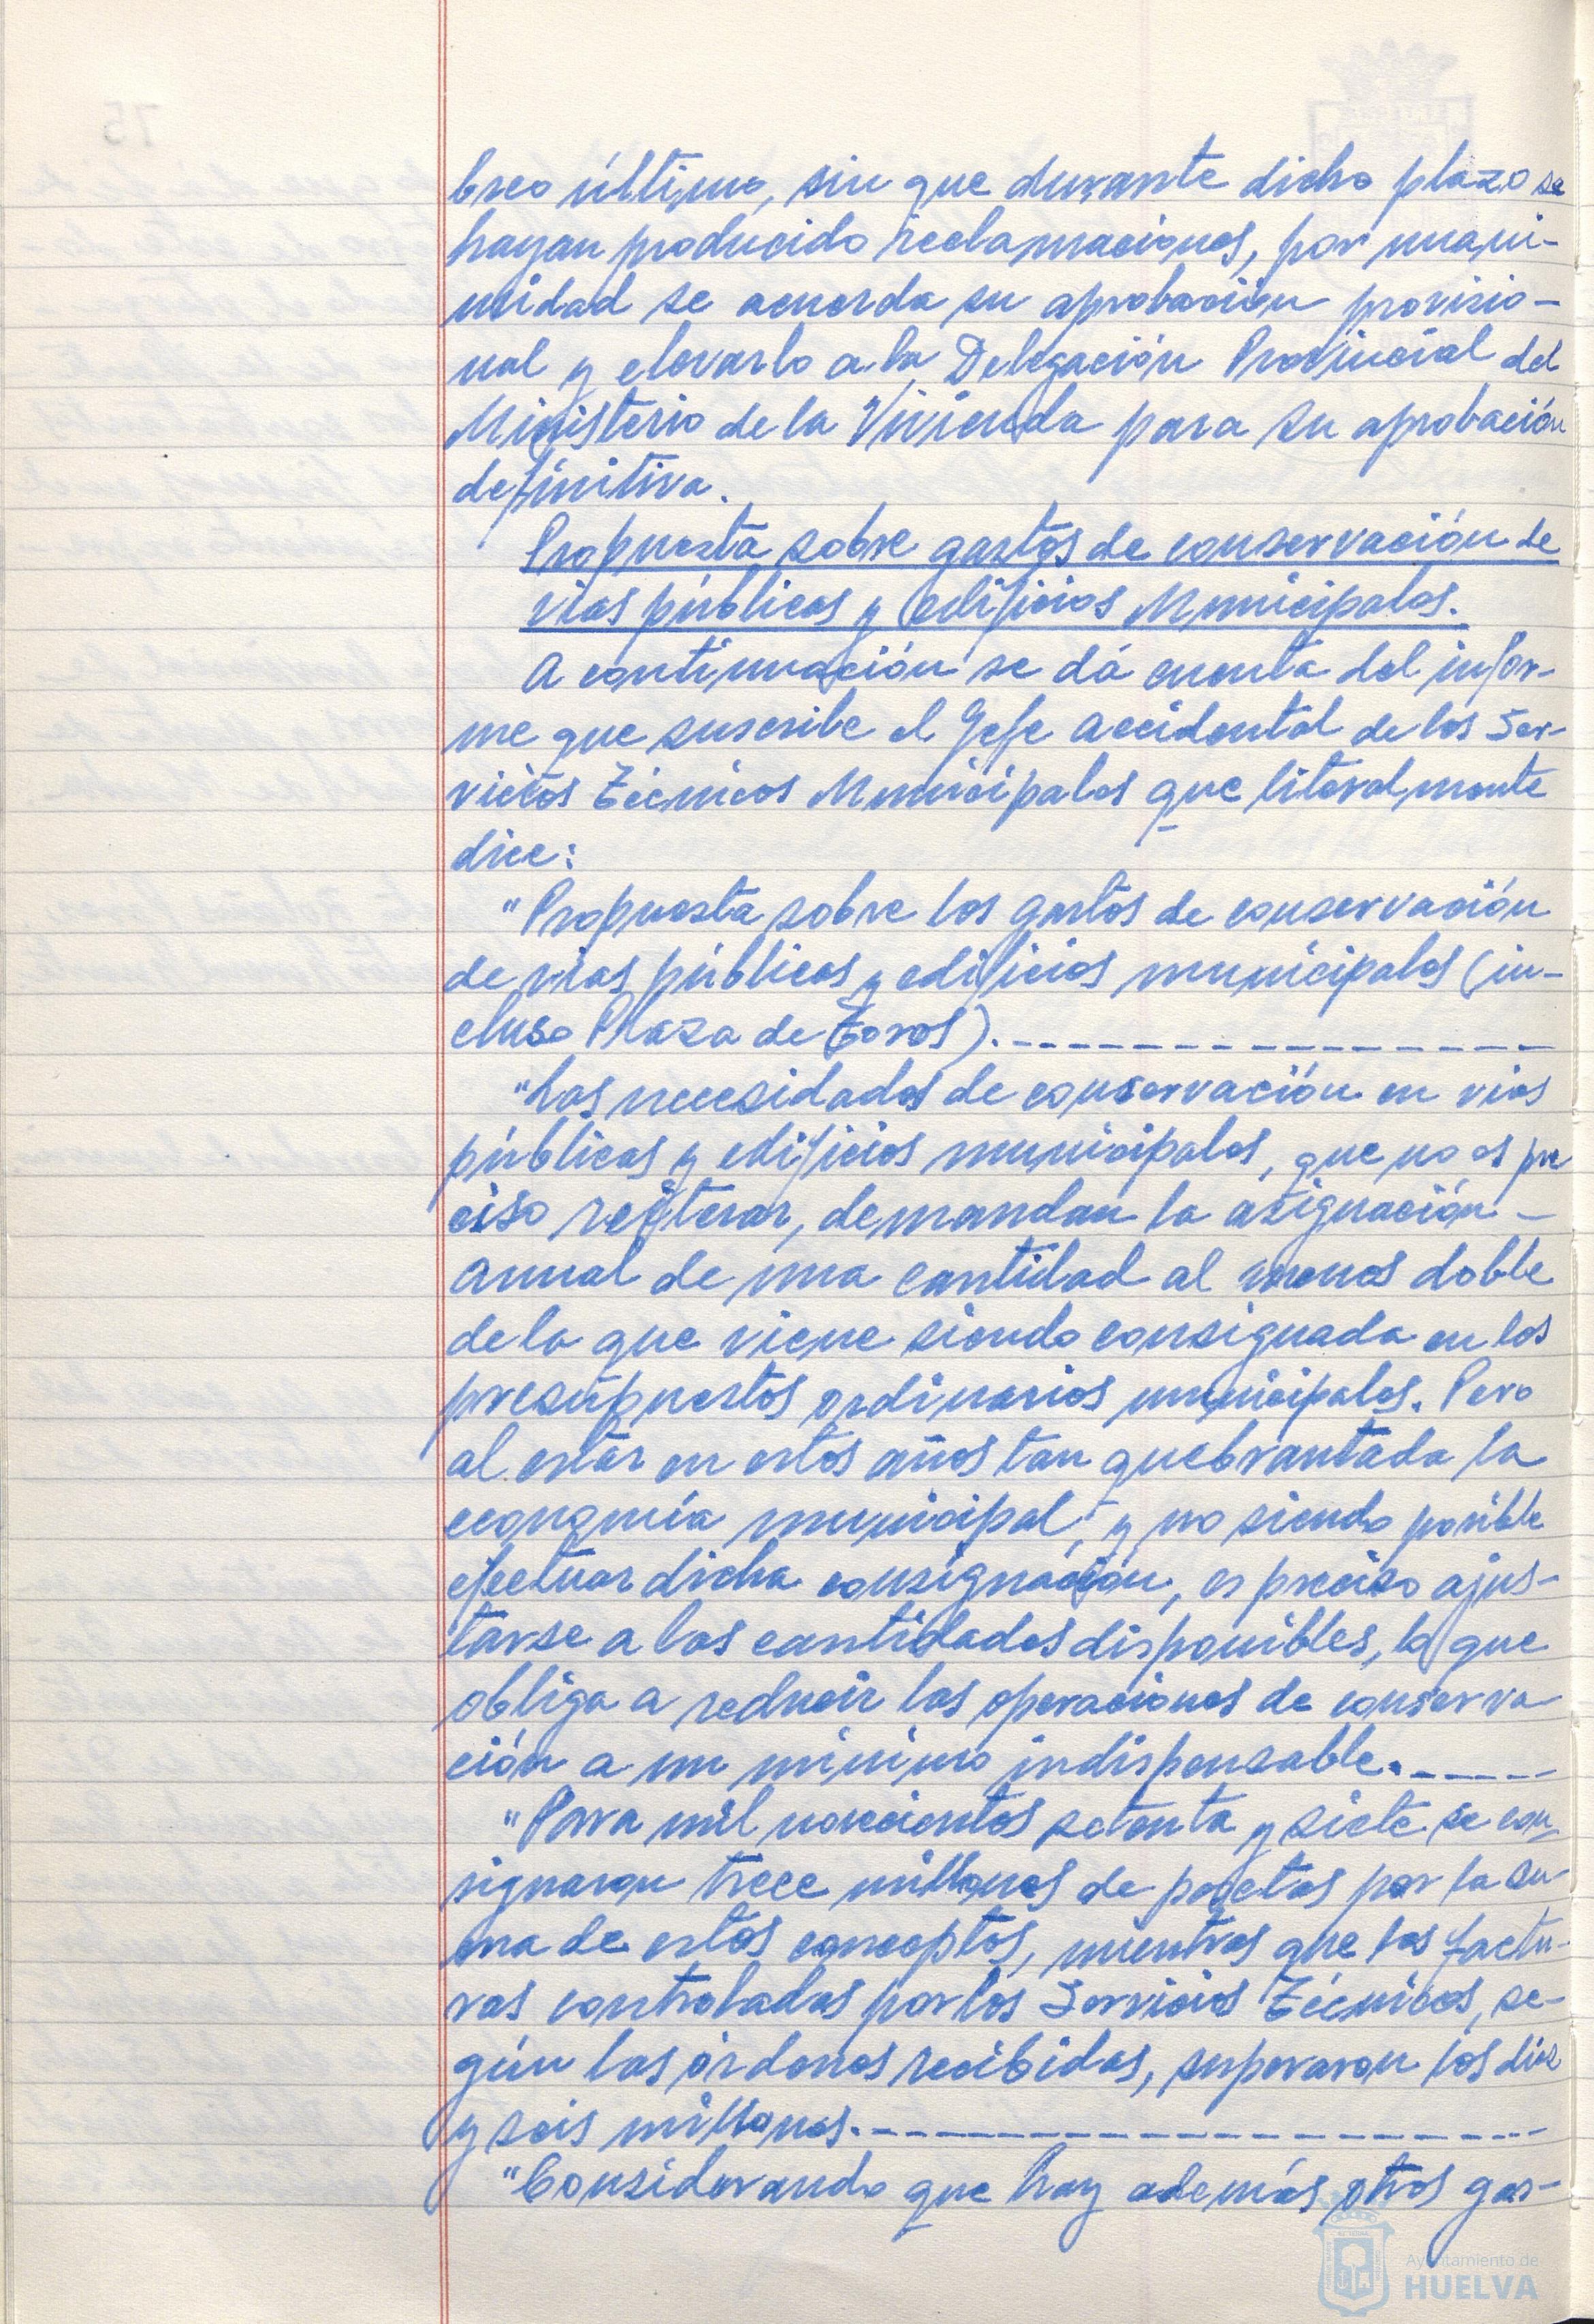 breo último, sin que durante dicho plazo se
hayan producido reclamaciones, por unani-
midad se acuerda su aprobación provisio-
nal y elevarlo a la Delegación Provincial del
Ministerio de la Vivienda para su aprobación
definitiva.
Propuesta sobre gastos de conservación de
vías públicas y edificios Municipales.
A continuación se dá cuenta del infor-
me que suscribe el Jefe accidental de los Ser-
vicios Técnicos Municipales que literalmente
dice:
"Propuesta sobre los gastos de conservación
de vías públicas y edificios municipales (in-
cluso Plaza de Toros).
"Las necesidades de conservación en vías
públicas y edificios municipales, que no es pre
ciso reiterar, demandan la asignación -
anual de una cantidad al menos doble
de la que viene siendo consignada en los
presupuestos ordinarios municipales. Pero
al estar en estos años tan quebrantada la
economía municipal, y no siendo posible
efectuar dicha consignación, es preciso ajus-
tarse a las cantidades disponibles, lo que
obliga a reducir las operaciones de conserva
ción a un mínimo indispensable.
"Para mil novecientos setenta y siete se con-
signaron trece millones de pesetas por la su-
ma de estos conceptos, mientras que las factu-
ras controladas por los Servicios Técnicos, se-
gún las órdenes recibidas, superaron los diez
y seis millones.
"Considerando que hay además otros gas-
Ayuntamiento de
HUELVA